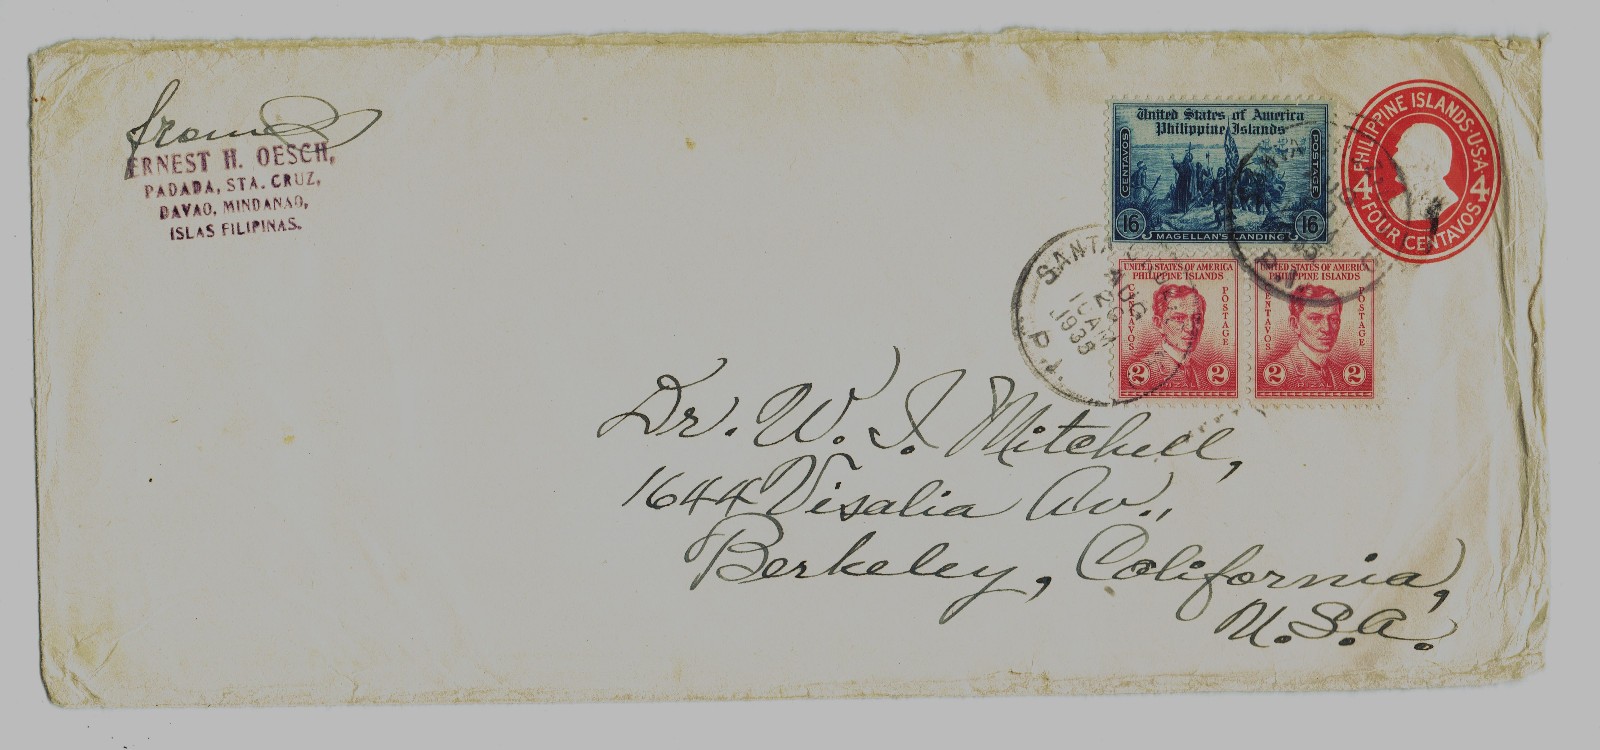 from
ERNEST H. OESCH,
PADADA, STA. CRUZ,
DAVAO, MINDANAO,
ISLAS FILIPINAS.
United States of America
Philippine Islands
CENTAVOS
POSTAGE
16 16
MAGELLAN'S LANDING
PHILIPPINE ISLANDS·U·S·A·
4 4
FOUR CENTAVOS
SANTA
AUG
26
10AM
1938
P.I.
UNITED STATES OF AMERICA
PHILIPPINE ISLANDS
CENTAVOS
POSTAGE
2 2
RIZAL
UNITED STATES OF AMERICA
PHILIPPINE ISLANDS
CENTAVOS
POSTAGE
2 2
RIZAL
Dr. W. I. Mitchell,
1644 Visalia Av.,
Berkeley, California,
U.S.A.